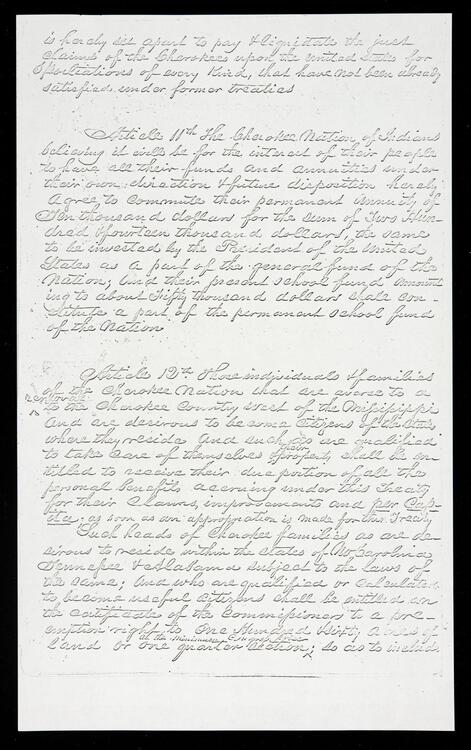 is hereby set apart to pay & liquidate the just
claims of the Cherokees upon the United States for
Spoliations of every kind, that have not been already
satisfied under former treaties
Article 11th The Cherokee Nation of Indians
believing it will be for the interest of their people
to have all their funds and annuities under
their own direction & future disposition hereby
agree to commute their permanent annuity of
Ten thousand dollars for the sum of Two Hun-
dred & fourteen thousand dollars, the same
to be invested by the President of the United
States as a part of the general fund of the
Nation; And their present school fund amount
ing to about Fifty thousand dollars shall con-
stitute a part of the permanent school fund
of the Nation
Article 12th Those individuals & families
of the Cherokee Nation that are averse to a
removal
to the Cherokee Country West of the Mississippi
And are desirous to become Citizens of the States
where they reside And such as are qualified
to take care of themselves & their property shall be en
titled to receive their due portion of all the
personal benefits accruing under this Treaty
for their Claims, improvements and per Cap-
ita; as soon as an appropriation is made for this Treaty
Such heads of Cherokee families as are de-
sirous to reside within the States of No. Carolina
Tennessee & Alabama subject to the laws of
the same; And who are qualified or calculated
to become useful citizens shall be entitled on
the certificate of the Commissioners to a pre-
emption right to One Hundred & Sixty Acres of
at the minimum Congress price
land or one quarter Section; so as to include